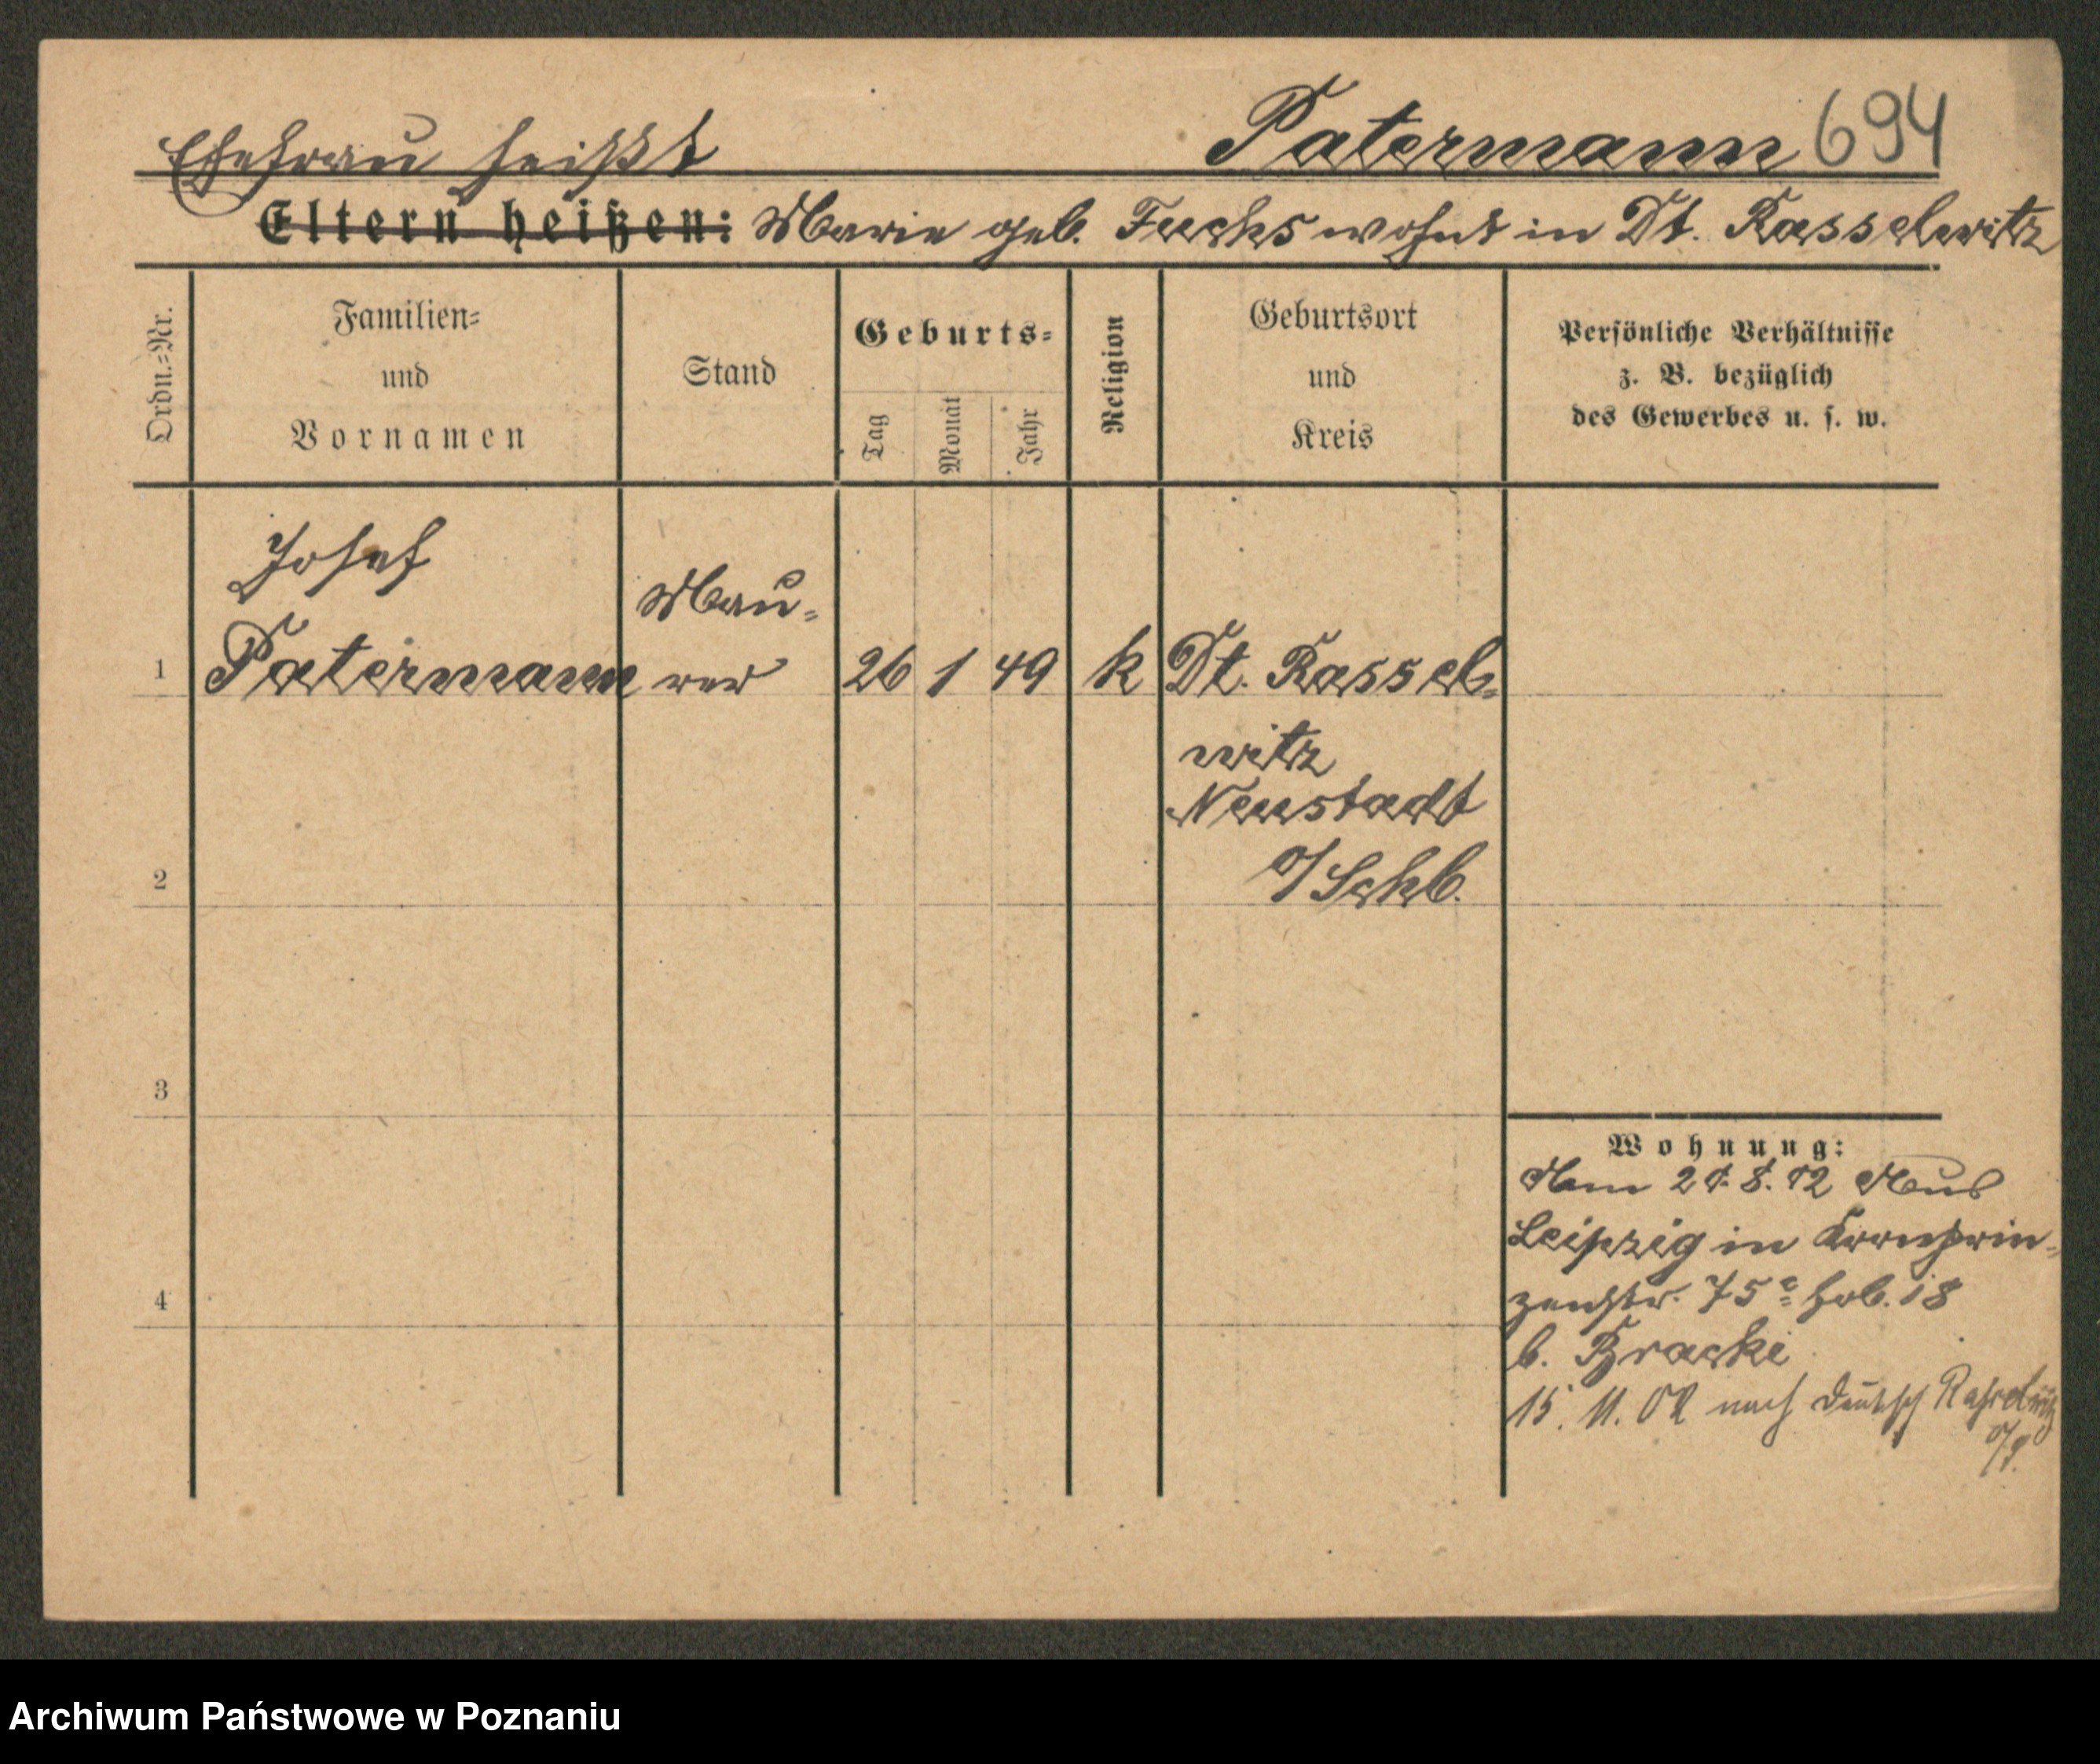 Ehefrau heißt Patermann 694
Eltern heißen: Marie geb. Fuchs wohnt in Dt. Rasselwitz
Ordn.=Nr.
Familien=
und
Vornamen
Stand
Geburts=
Tag
Monat
Jahr
Religion
Geburtsort
und
Kreis
Persönliche Verhältnisse
z. B. bezüglich
des Gewerbes u. s. w.
Josef
Mau=
1 Patermann rer 26 1 49 k Dt. Rassel=
witz
Neustadt
2 O/Schl.
3
Wohnung:
Aus
Leipzig in Kronprin=
4 zenstr. 75 18
b. Bracki
15. 11. 02 nach Deutsch Rasselwitz
O/S.
Archiwum Państwowe w Poznaniu